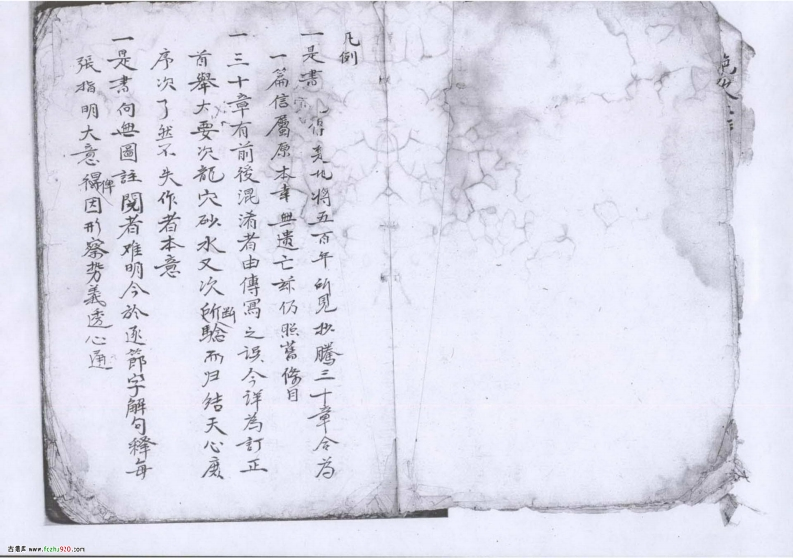 凡例
一是書 得 九將五百年所見抄騰三十章合為
一篇信屬原本幸無遺亡 仍照舊條目
一三十章有前後混淆者由傳寫之誤今詳為訂正
首舉大要次龍穴砂水又次所斷驗而归结天心庶
序次了然不失作者本意
一是書向無圖註閱者难明今於逐節字解句釋每
張指明大意俾得因形察势義透心通
古籍库 www.fczhu920.com